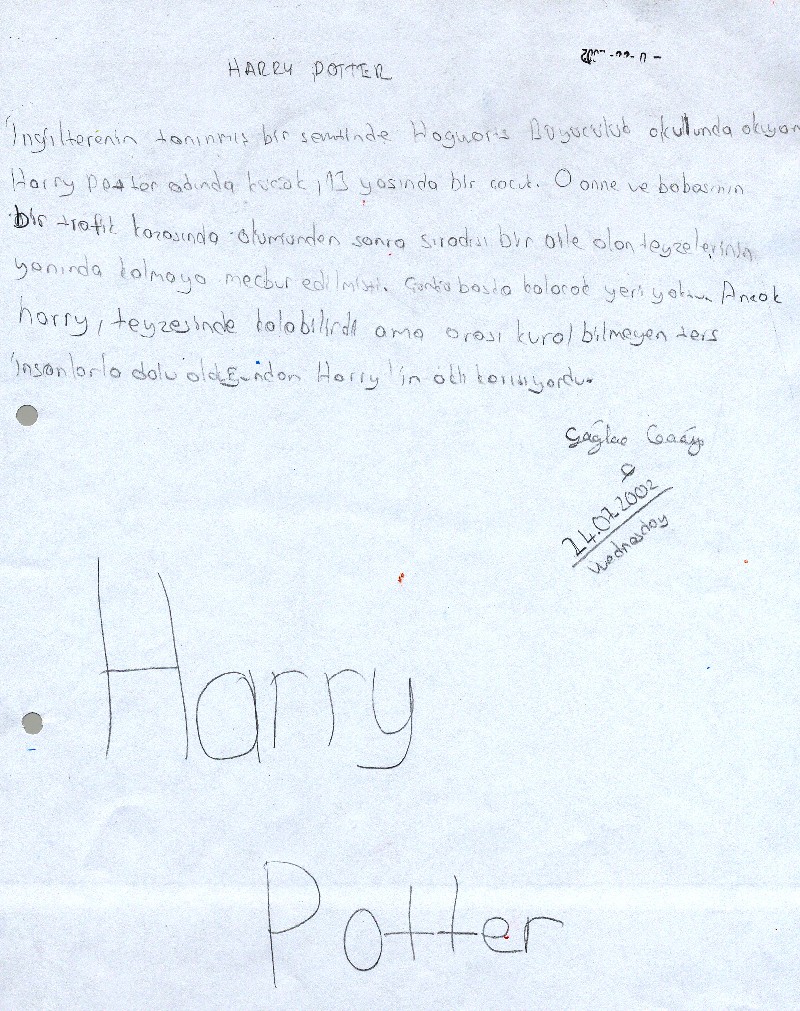 HARRY POTTER
İngilterenin tanınmış bir semtinde Hogworts Büyücülük okulunda okuyan
Harry Potter adında kucak, 13 yaşında bir çocuk. O anne ve babasının
bir trafik kazasında ölümünden sonra sıradışı bir aile olan teyzelerinin
yanında kalmaya mecbur edilmişti. Çünkü başka kalacak yeri yoktu. Ancak
harry, teyzesinde kalabilirdi ama orası kural bilmeyen ters
insanlarla dolu olduğundan Harry'in aklı karışıyordu.
Çağlar
24.07.2002
Wednesday
Harry
Potter